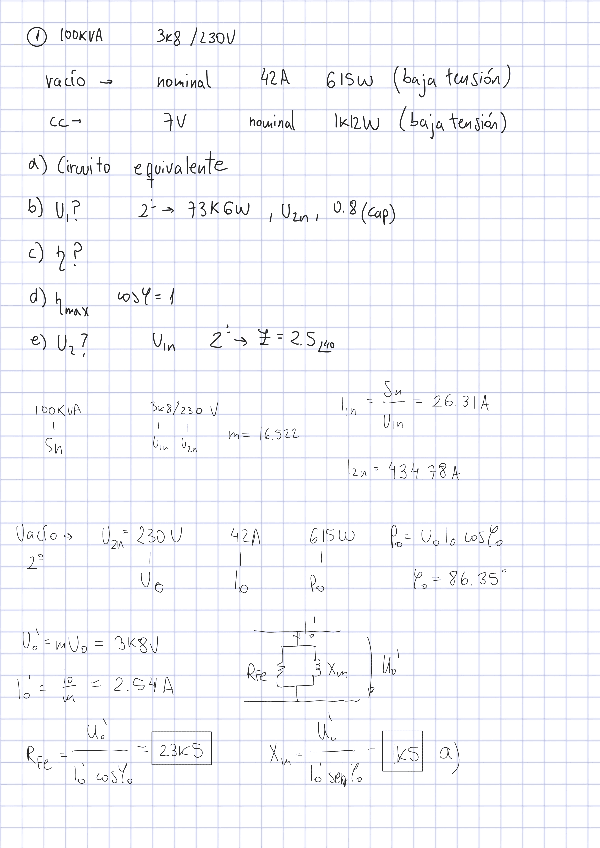 ① 100KVA 3K8/230V
vacío → nominal 42A 615W (baja tensión)
cc → 7V nominal 1K12W (baja tensión)
a) Circuito equivalente
b) U₁? 2º → 73K6W, U₂ₙ, 0.8 (cap)
c) η?
d) ηmax cosφ = 1
e) U₂? U₁ₙ 2º → Z = 2.5∠40
100KVA 3K8/230 V m = 16.522 I₁ₙ = Sn/U₁ₙ = 26.31A
Sn U₁ₙ U₂ₙ
I₂ₙ = 434.78A
Vacío → U₂ₙ = 230V 42A 615W P₀ = U₀ I₀ cosφ₀
2º U₀ I₀ P₀ φ₀ = 86.35°
U₀' = mU₀ = 3K8V I₀'
I₀' = I₀/m = 2.54A RFe Xm U₀'
RFe = U₀'/(I₀' cosφ₀) = 23K5 Xm = U₀'/(I₀' senφ₀) = 1K5 a)